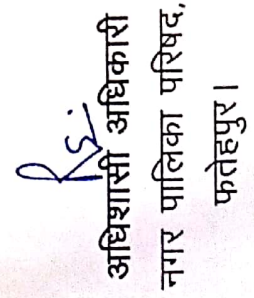 अधिशासी अधिकारी
नगर पालिका परिषद,
फतेहपुर।